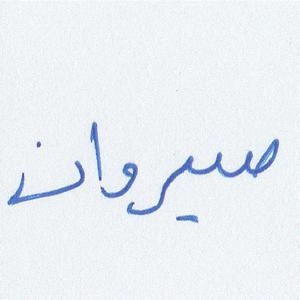 صيروان